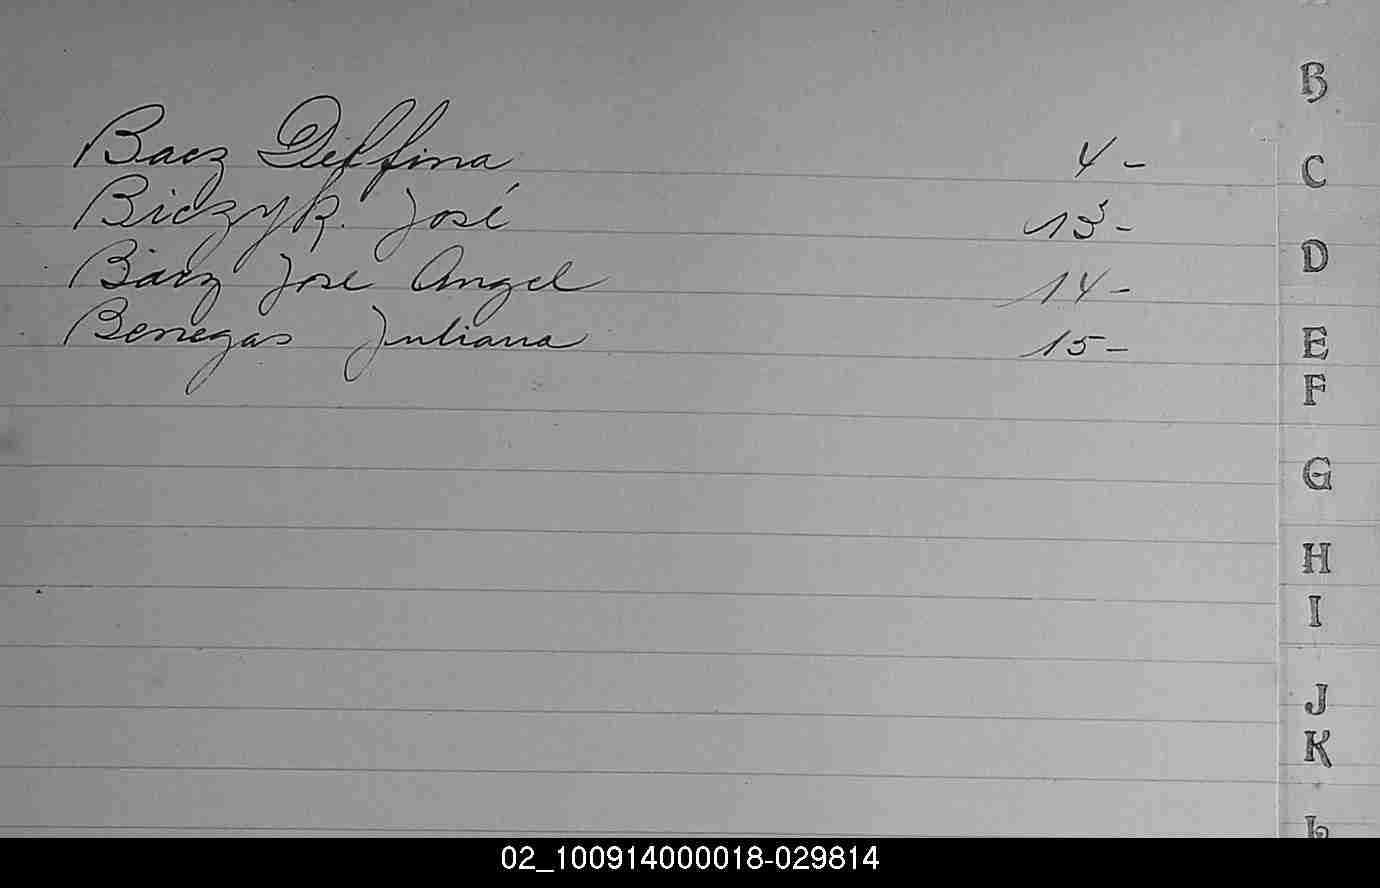 Baez Delfina 4-
Biczyk. José 13-
Báez Jose Angel 14-
Benegas Juliana 15-
B
C
D
E
F
G
H
I
J
K
L
02_100914000018-029814